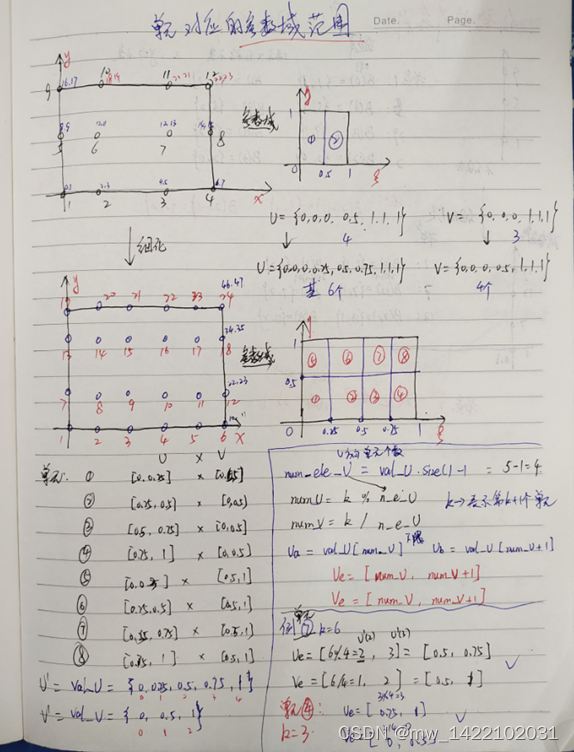 单元对应的参数域范围
Date.
Page.
y
9 16.17 10 18.19 11 20.21 12 22.23
8.9 12.13
5 6 7 8
0.1 2.3 4.5 6.7
1 2 3 4 x
参数域
1
① ②
0 0.5 1
U = {0,0,0, 0.5, 1,1,1}
4
V = {0,0,0, 1,1,1}
3
细化
U = {0,0,0,0.25,0.5,0.75,1,1,1}
6个
V = {0,0,0,0.5,1,1,1}
4个
y
19 20 21 22 23 24 46.47
34.35
13 14 15 16 17 18
22.23
7 8 9 10 11 12
1 2 3 4 5 6 x
参数域
1
⑤ ⑥ ⑦ ⑧
0.5
② ③ ④
0 0.25 0.5 0.75 1
U × V
单元: ① [0,0.25] × [0,0.5]
② [0.25,0.5] × [0,0.5]
③ [0.5, 0.75] × [0,0.5]
④ [0.75, 1] × [0,0.5]
⑤ × [0.5,1]
⑥ [0.25,0.5] × [0.5,1]
⑦ [0.5, 0.75] × [0.5,1]
⑧ 1] × [0.5,1]
U' = val_U = {0, 0.25, 0.5, 0.75, 1}
0 1 2 3 4
V' = val_V = {0, 0.5, 1}
0 1 2
U方向单元个数
num_ele_U = val_U.size()-1 = 5-1=4
numU = k % n_e_U
numV = k / n_e_U
k→表示第k+1个单元
Ua = val_U[num_U]
Ub = val_U[num_U+1]
Ue = [num_U, num_U+1]
Ve = [num_V, num_V+1]
例 单元⑦ k=6
U'(2) U'(3)
Ue = [6%4=2, 3] = [0.5, 0.75]
Ve = [6/4=1, 2] = [0.5, 1]
单元④ k=3
3%4=3
Ue = [0.75, 1]
CSDN @mw_1422102031